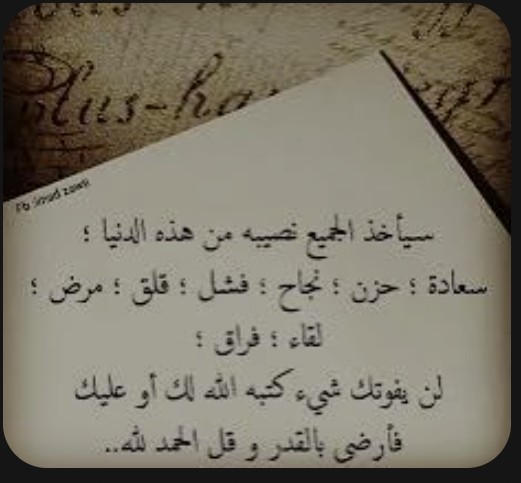 plus-ha
Fb :imad zawi
سيأخذ الجميع نصيبه من هذه الدنيا ؛
سعادة ؛ حزن ؛ نجاح ؛ فشل ؛ قلق ؛ مرض ؛
لقاء ؛ فراق ؛
لن يفوتك شيء كتبه الله لك أو عليك
فأرضى بالقدر و قل الحمد لله..